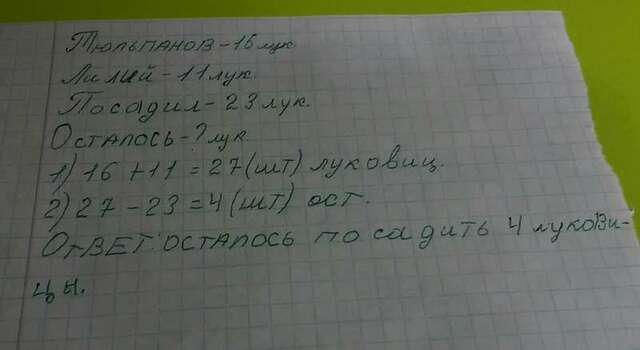 Тюльпанов-16лук.
Лилий-11лук.
Посадил-23лук.
Осталось-?лук
1)16+11=27(шт) луковиц.
2)27-23=4(шт) ост.
Ответ:осталось посадить 4 лукови-
цы.